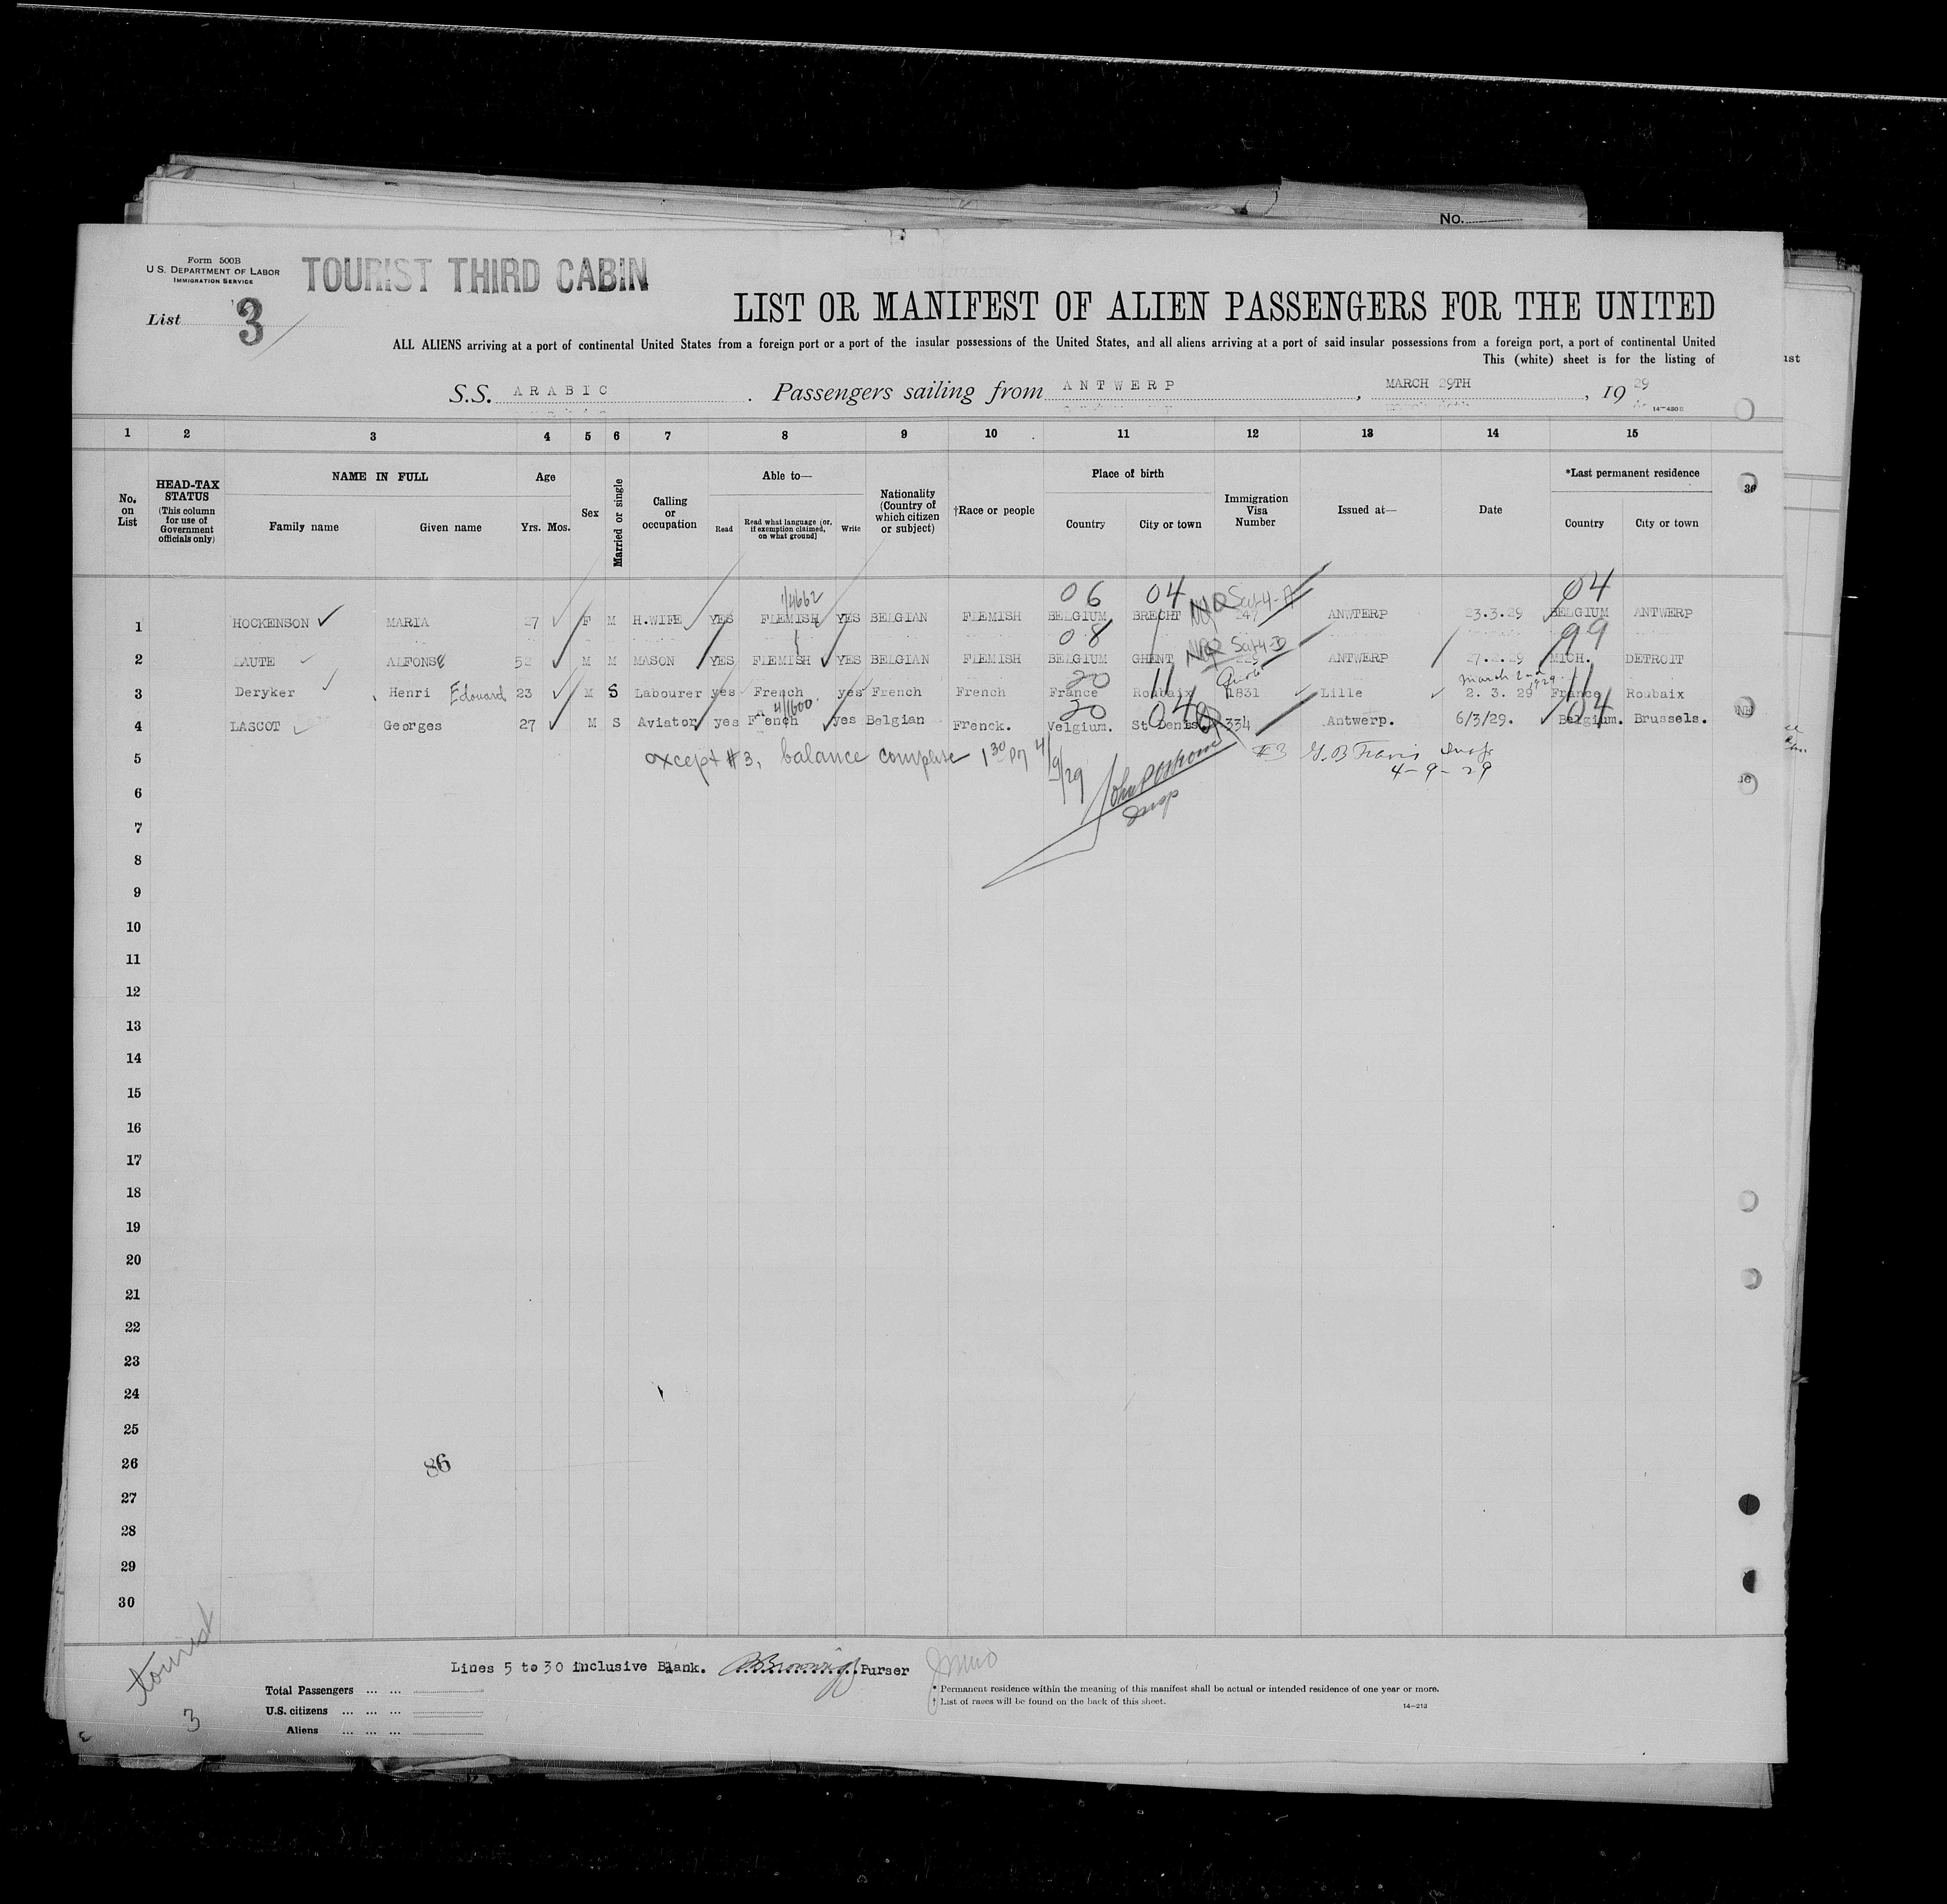 No.
Form 500B
U.S. DEPARTMENT OF LABOR
IMMIGRATION SERVICE
TOURIST THIRD CABIN
List 3
LIST OR MANIFEST OF ALIEN PASSENGERS FOR THE UNITED
ALL ALIENS arriving at a port of continental United States from a foreign port or a port of the insular possessions of the United States, and all aliens arriving at a port of said insular possessions from a foreign port, a port of continental United
This (white) sheet is for the listing of
S.S. ARABIC. Passengers sailing from ANTWERP, MARCH 29TH, 19 29
1 2 3 4 5 6 7 8 9 10 11 12 13 14 15
No. on List
HEAD-TAX STATUS (This column for use of Government officials only)
NAME IN FULL
Family name Given name
Age
Yrs. Mos.
Sex
Married or single
Calling or occupation
Able to—
Read
Read what language (or, if exemption claimed, on what ground)
Write
Nationality (Country of which citizen or subject)
†Race or people
Place of birth
Country City or town
Immigration Visa Number
Issued at—
Date
*Last permanent residence
Country City or town
06 04 04
1 HOCKENSON MARIA 27 F M H.WIFE YES FLEMISH YES BELGIAN FLEMISH BELGIUM BRECHT 247 ANWTERP 23.3.29 BELGIUM ANTWERP
08 99
2 LAUTE ALFONSE 52 M M MASON YES FLEMISH YES BELGIAN FLEMISH BELGIUM GHENT 229 ANTWERP 27.2.29 MICH. DETROIT
20 11 March 2nd 1929. 11
3 Deryker Henri Edouard 23 M S Labourer yes French yes French French France Roubaix 1831 Lille 2. 3. 29 France Roubaix
4/1600. 20 04 04
4 LASCOT Georges 27 M S Aviator yes French yes Belgian Frenck. Velgium. St Denis 334 Antwerp. 6/3/29. Belgium. Brussels.
5 except #3, balance complete 1 30 PM 4/9/29 #3
4-9-29
Insp
6
7
8
9
10
11
12
13
14
15
16
17
18
19
20
21
22
23
24
25
26
86
27
28
29
30
tourist
3
Lines 5 to 30 inclusive Blank. Purser
Total Passengers ... ...
U.S. citizens ... ... ...
Aliens ... ... ...
* Permanent residence within the meaning of this manifest shall be actual or intended residence of one year or more.
† List of races will be found on the back of this sheet.
14—213